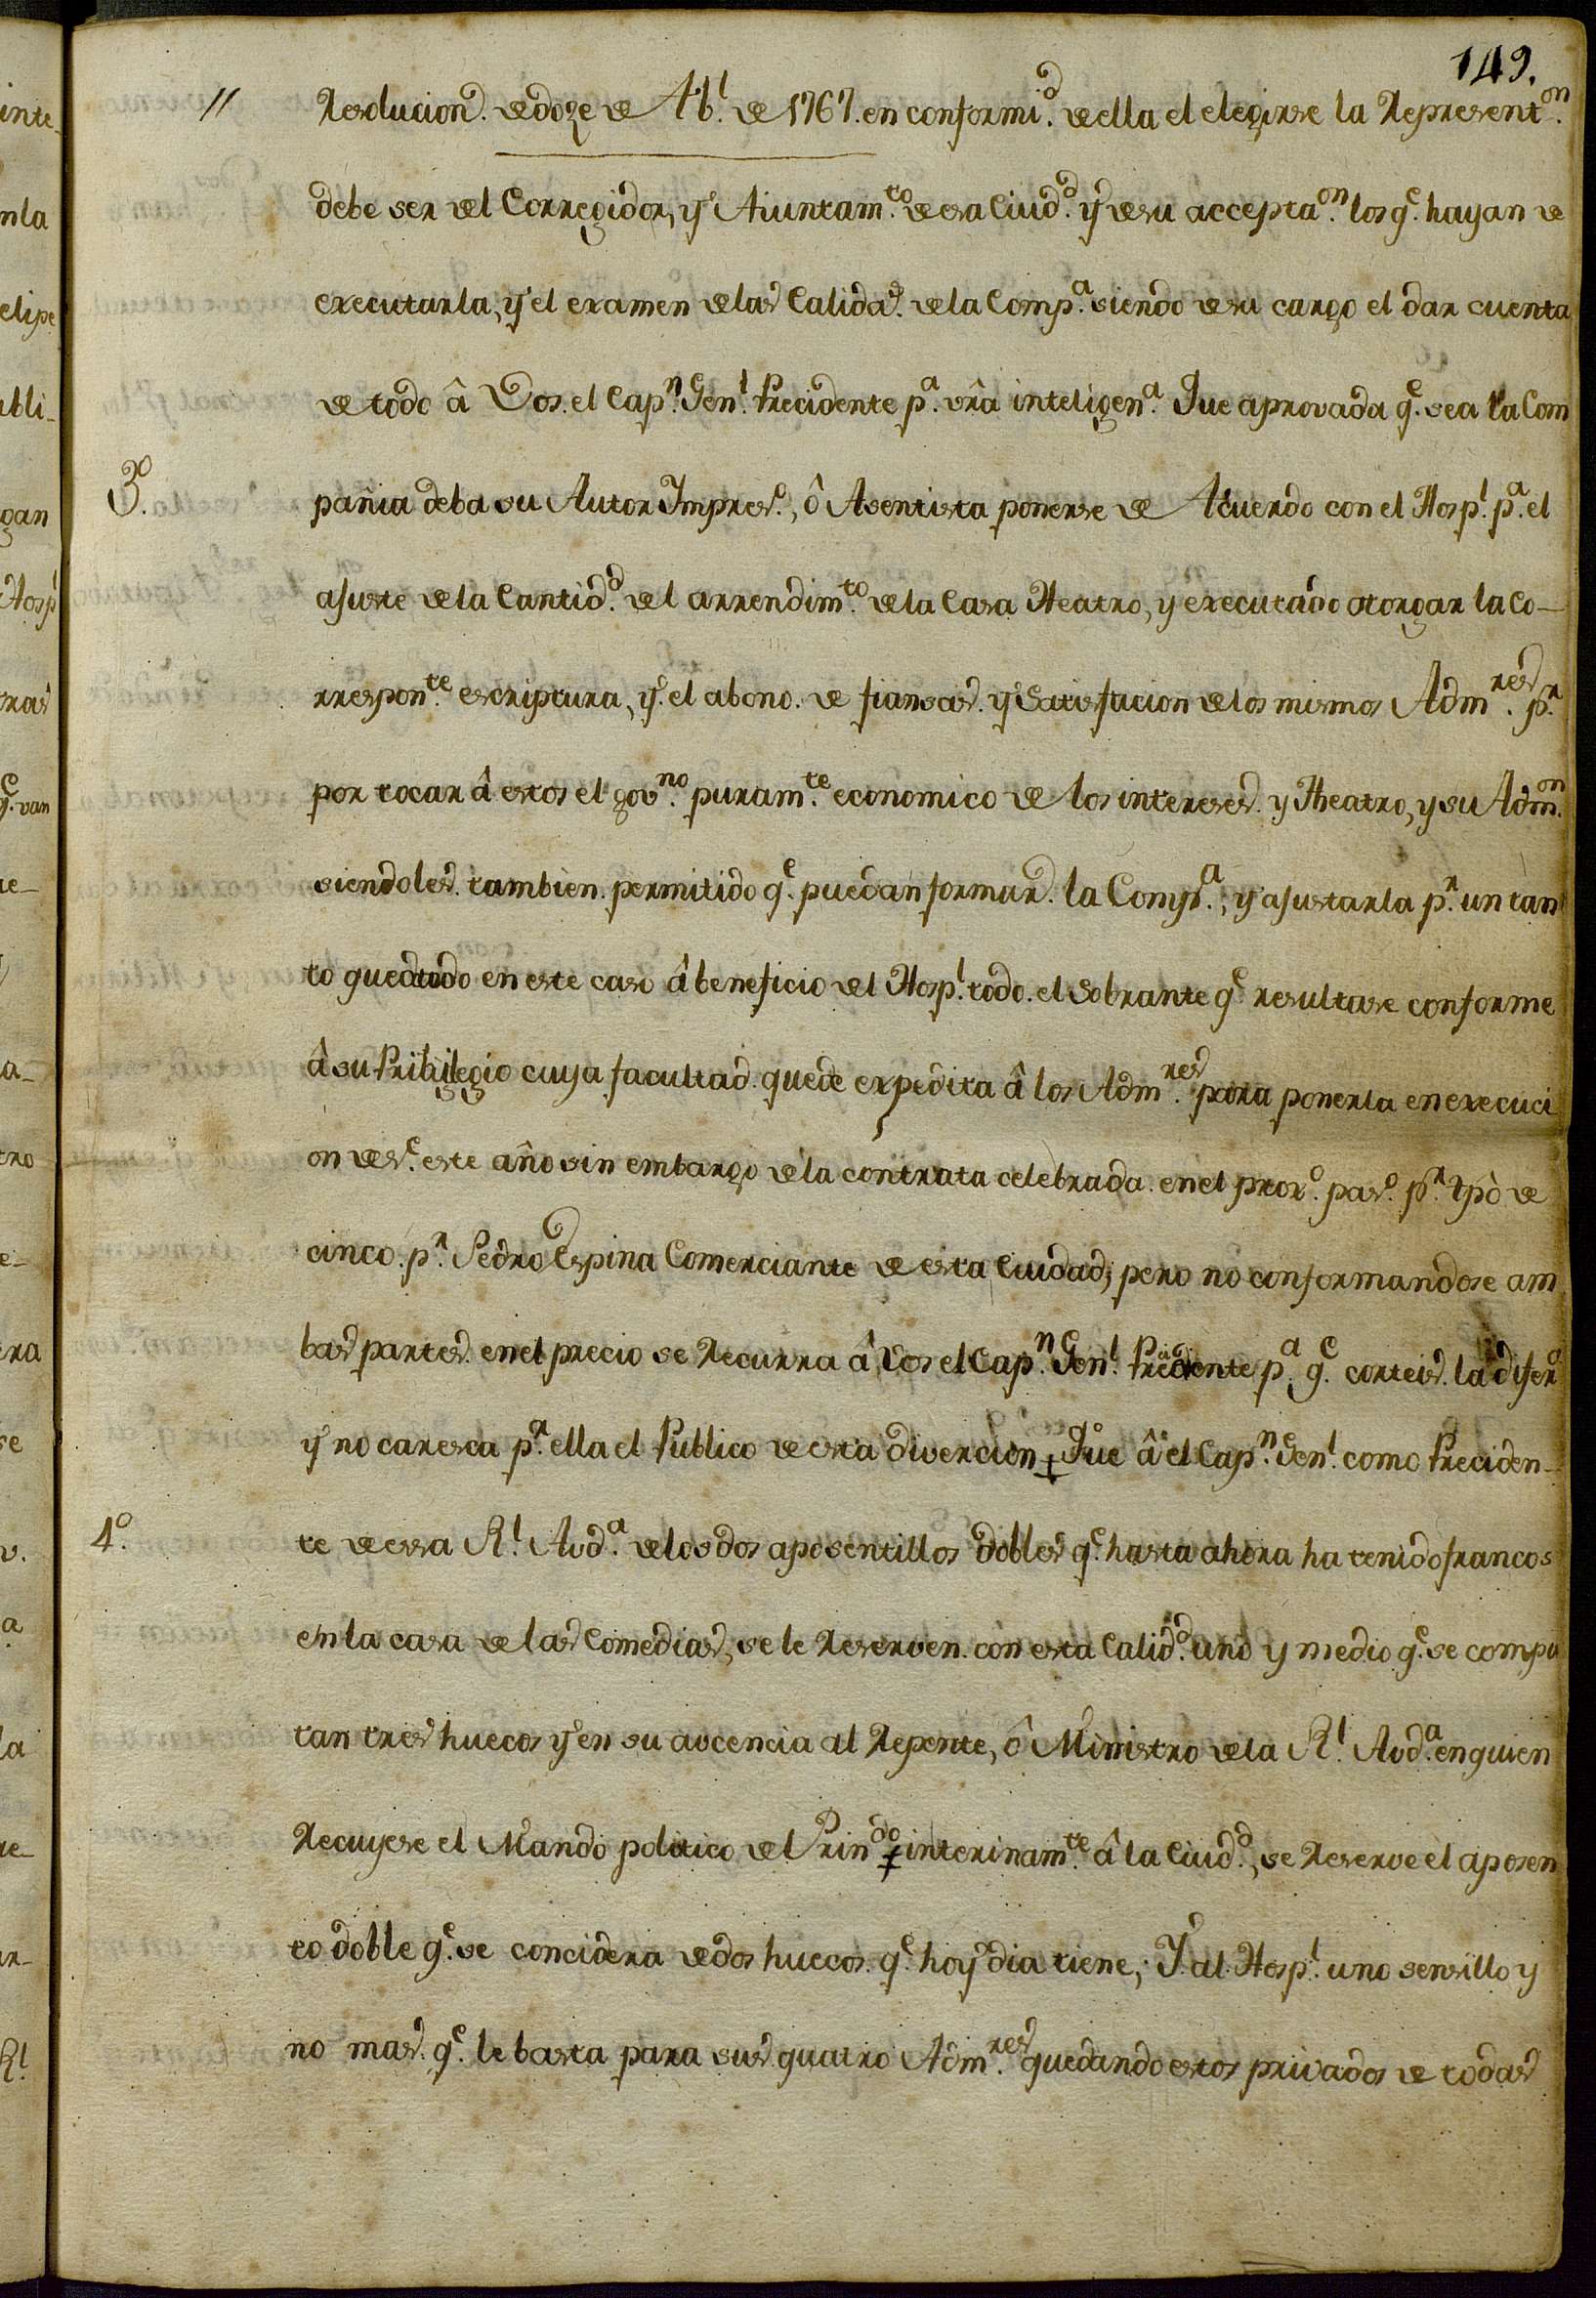 149.
// Resolucion. de doze de Ab.l de 1767. en conformi.d de ella el elegirse la Represent.on
debe ser del Corregidor, y Aiuntam.to de esa Ciud.d y de su accepta.on los q.e hayan de
executarla, y el examen de las Calidad.s de la Comp.a siendo de su cargo el dar cuenta
de todo â Vos. el Cap.n Gen.l Precidente p.a vrâ inteligen.a Que aprovada q.e sea la Com
3.o pañia deba su Autor Impres.o, ô Asentista ponerse de Acuerdo con el Hosp.l p.a el
ajuste de la Cantid.d del arrendim.to de la Casa Theatro, y executado otorgar la Co-
rrespon.te escriptura, y el abono. de fiansas. y Satisfacion de los mismos Adm.res p.r
por tocar â estos el gov.no puram.te economico de los intereses. y Theatro, y su Adm.on
siendoles. tambien. permitido q.e puedan formar. la Comp.a, y ajustarla p.r un tan
to quedando en este caso â beneficio del Hosp.l todo. el Sobrante q.e resultase conforme
â su Pribilegio cuya facultad. quede expedita â los Adm.res para ponerla en execuci
on des.e este año sin embargo de la contrata celebrada. en el prox.o pas.o p.r tpô de
cinco. p.r Pedro Espina Comerciante de esta Ciudad; pero no conformandose am
bas partes. en el precio se Recurra â Vos el Cap.n Gen.l Precidente p.a q.e corteis. la difer.a
y no caresca p.r ella el Publico de esta divercion Que â el Cap.n Gen.l como Preciden-
4.o te de essa R.l Aud.a de los dos aposentillos dobles q.e hasta ahora ha tenido francos
en la casa de las Comedias, se le Reserven. con esta Calid.d uno y medio q.e se compu
tan tres huecos y en su aucencia al Regente, ô Ministro de la R.l Aud.a en quien
Recuyese el Mando politico del Prin.do interinam.te â la Ciud.d, se Reserve el aposen
to doble q.e se concidera de dos huecos. q.e hoy dia tiene; Y al Hosp.l uno sensillo y
no mas. q.e le basta para sus quatro Adm.res quedando estos privados de todas